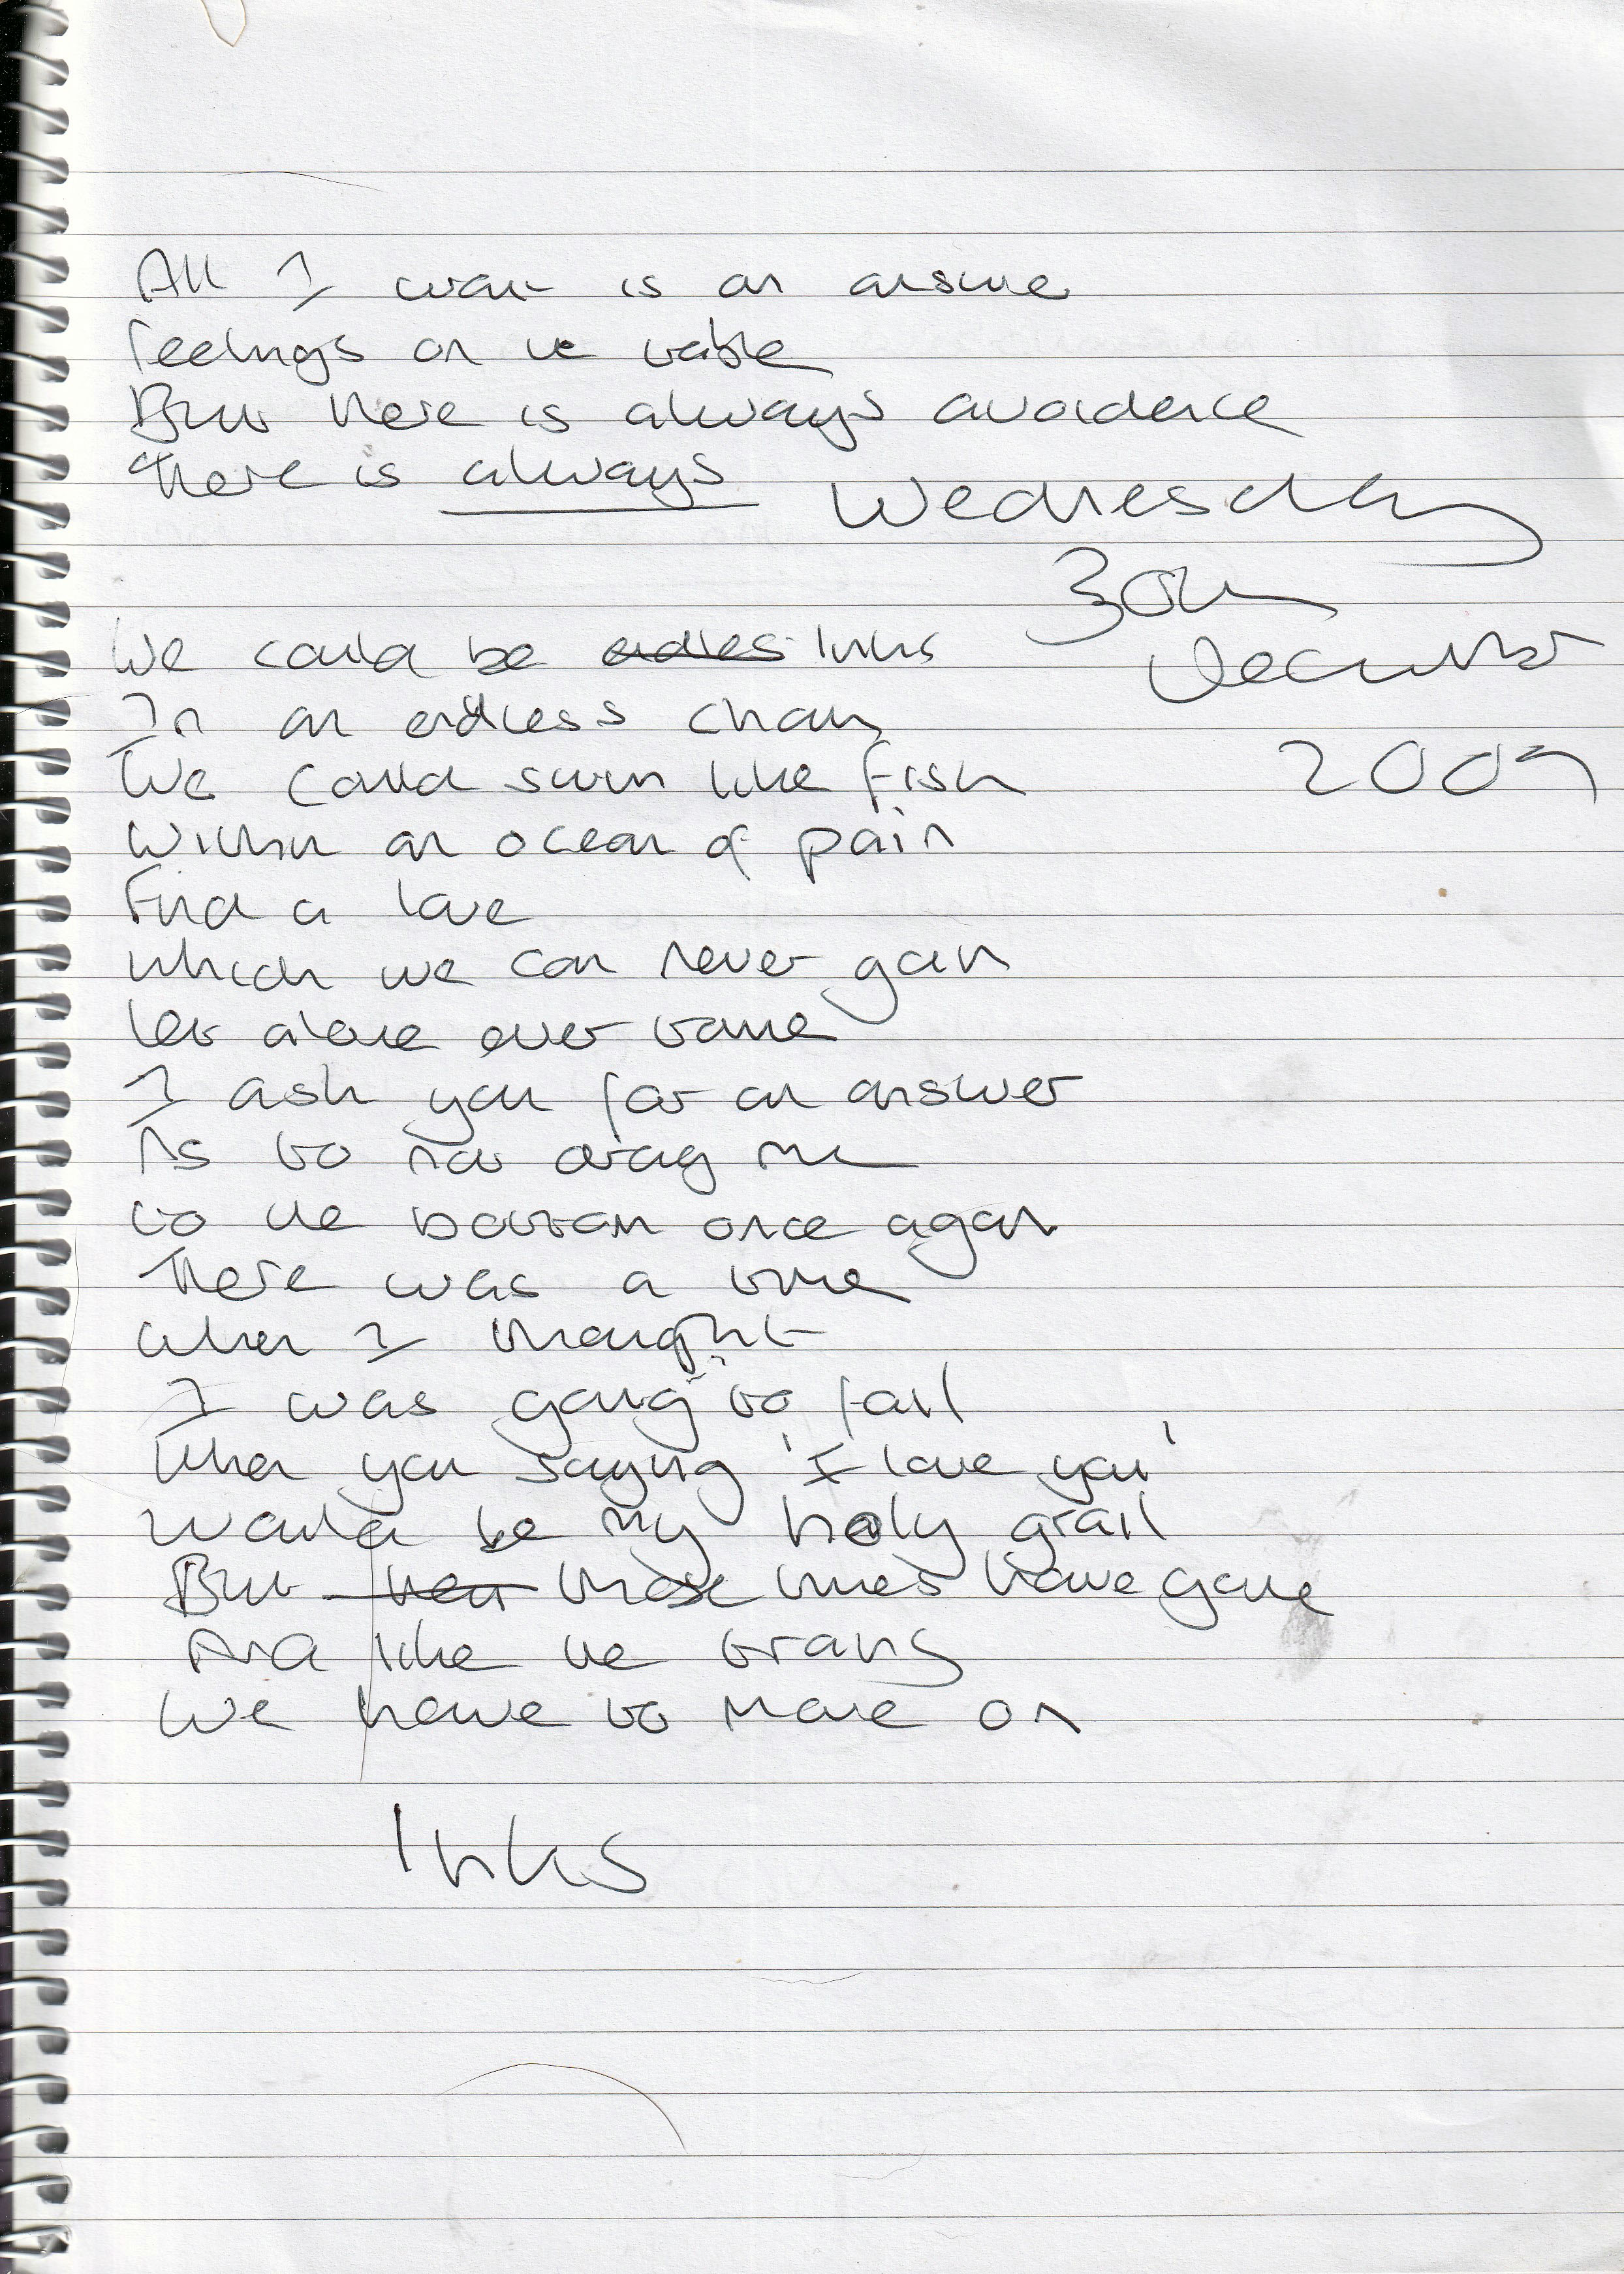 All I want is an answe
feelings on the table
But there is always avoidence
There is always
Wednesday
30th
December
2009
We could be endles links
In an endless chain
We could swim like fish
Within an ocean of pain
Find a love
which we can never gain
let alone ever tame
I ask you for an answer
As to not drag me
to the bottom once again
There was a time
when I thought
I was going to fail
When you saying 'I love you'
would be my holy grail
But then those times have gone
And like the trains
We have to move on
links